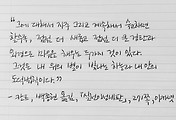 "그에 대해서 자주 그리고 계속해서 숙고하면
할수록, 점점 더 새롭고 점점 더 큰 경탄과
외경으로 마음을 채우는 두 가지 것이 있다.
그것은 내 위의 별이 빛나는 하늘과 내 안의
도덕법칙이다."
- 칸트, 백종현 옮김, 「실천이성비판」, 271쪽, 아카넷